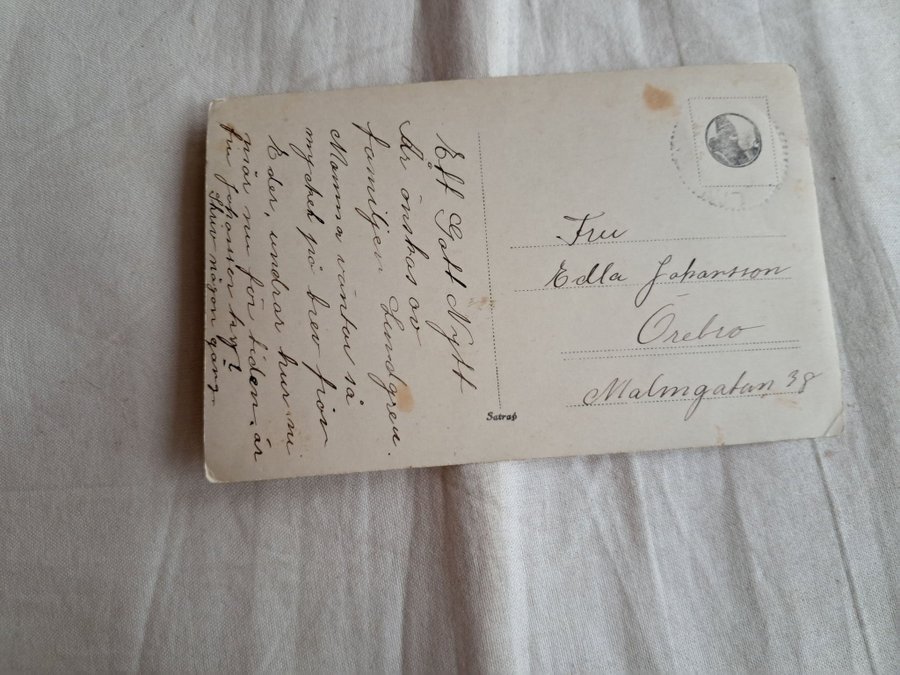 Ett Gott Nytt
År önskas av
familjen Lundgren.
Mamma väntar så
mycket på brev från
Eder, undrar hur ni
mår nu för tiden, är
fru Johansson kry?
Skriv någon gång.
Fru
Edla Johansson
Örebro
Malmgatan 38
Satrap